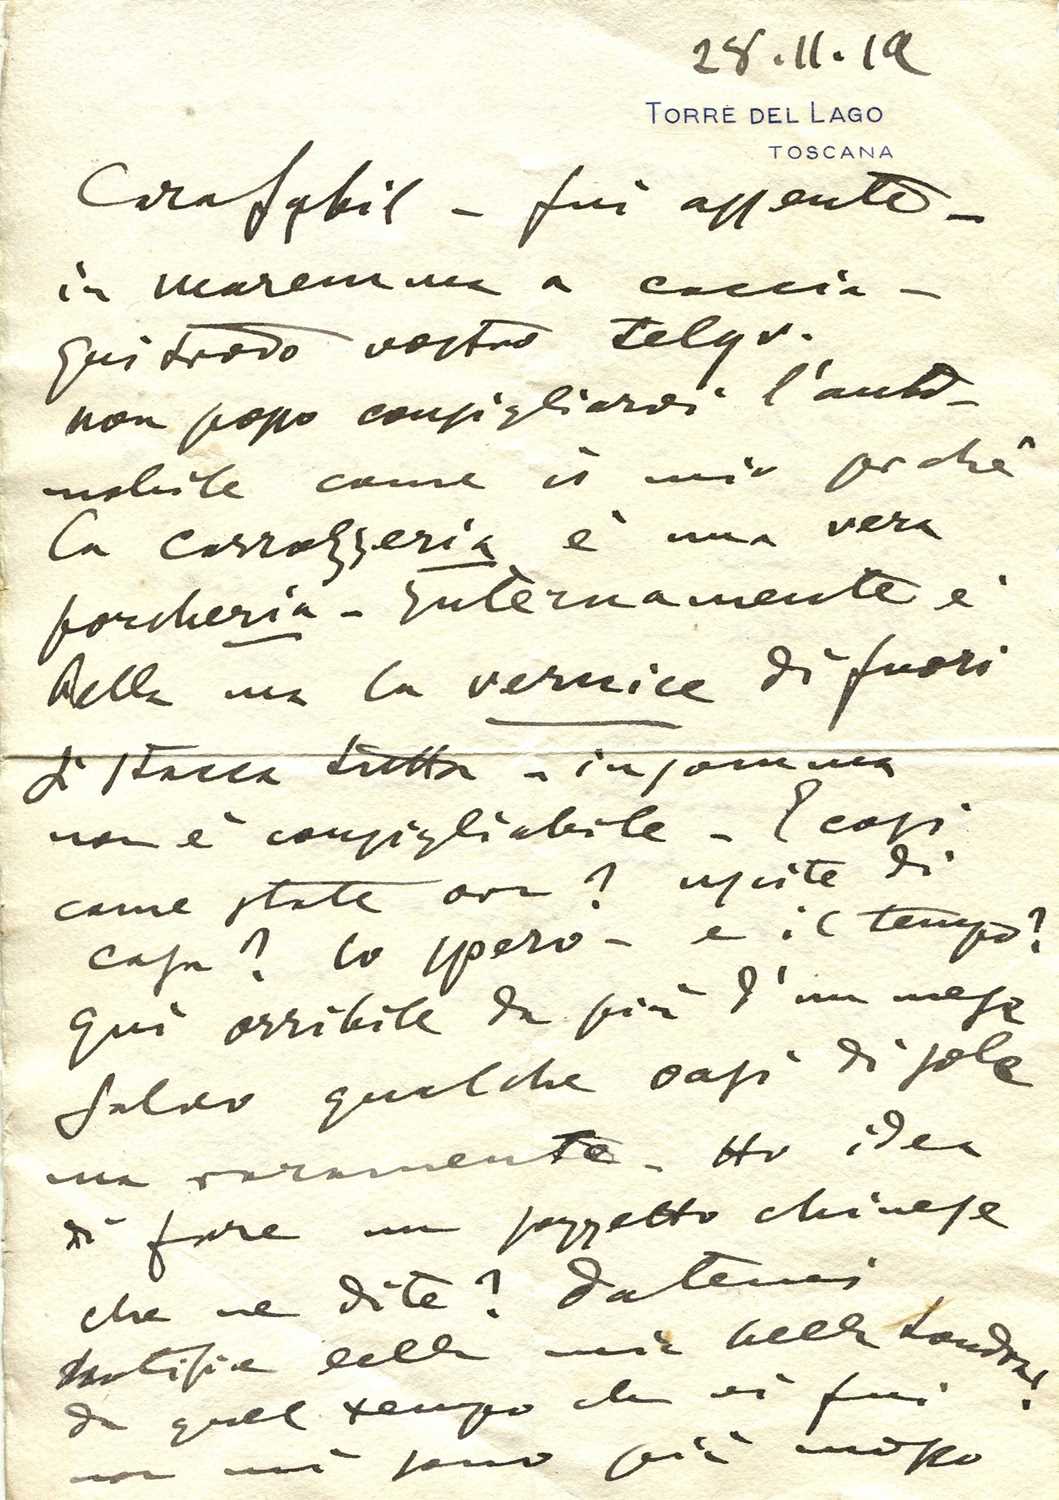 28.11.19
TORRE DEL LAGO
TOSCANA
Cara Sybil – fui assente –
in maremma a caccia –
Qui trovo vostro telgr.
non posso consigliarvi l'auto-
mobile come il mio perchè
la carrozzeria è una vera
porcheria – Internamente è
bella ma la vernice di fuori
si stacca tutta – insomma
non è consigliabile – E così
come state ora? uscite di
casa? lo spero – e il tempo?
Qui orribile da più d'un mese
salvo qualche oasi di sole
ma raramente – Ho idea
di fare un pozzetto chinese
che ne dite? Datemi
notizie della mia bella Londra!
da quel tempo che vi fui
non mi sono più mosso